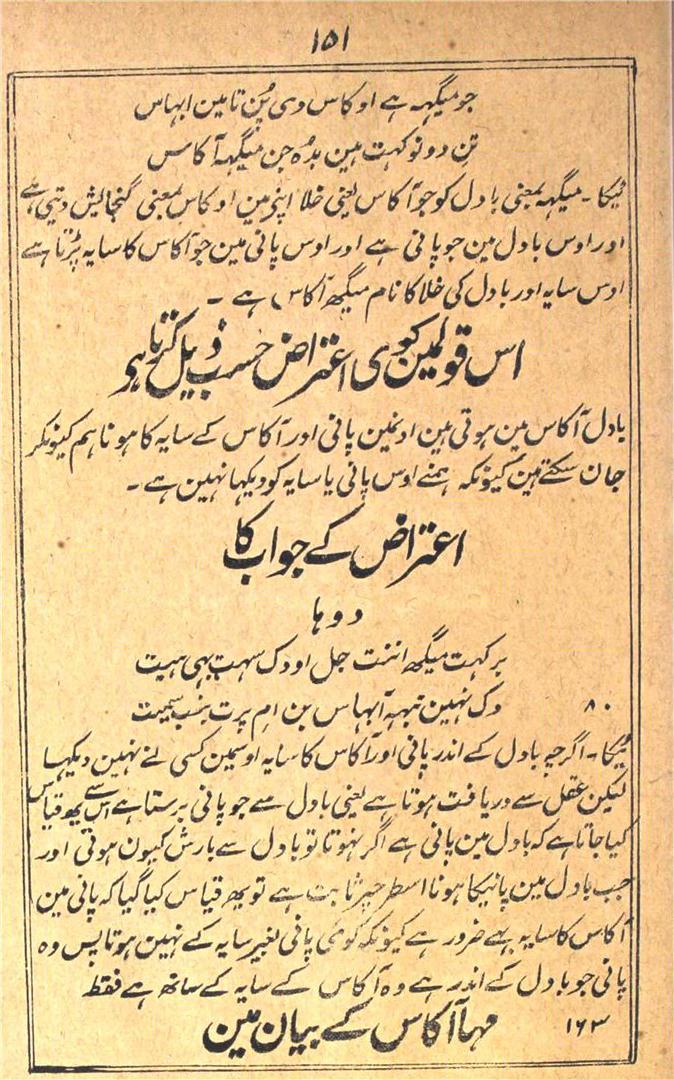 ۱۵۱
جو میگہہ ہے اوکاس دی پُن تامین ابہاس
تِن دونو کہت ہین بدُہ جن میگہہ آکاس
ٹیکا۔ میگہہ بمعنی بادل کو جو آکاس یعنی خلا اپنے مین اوکاس بمعنی گنجایش دیتی ہے
اور اوس بادل مین جو پانی ہے اور اوس پانی مین جو آکاس کا سایہ پڑتا ہے
اوس سایہ اور بادل کی خلا کا نام میگھ آکاس ہے ۔
اس قولمین کوی اعتراض حسب ذیل کرتا ہو
بادل آکاس مین ہوتی ہین اونمین پانی اور آکاس کے سایہ کا ہونا ہم کیونکر
جان سکتے ہین کیونکہ ہمنے اوس پانی یا سایہ کو دیکہا نہین ہے ۔
اعتراض کے جواب کا
دوہا
برکہت میگھ اننت جل اودک سہت یہی ہیت
۸۰ دک نہین نبہہ آبہاس بن اِم پرت بنب سمیت
ٹیکا۔ اگرچہ بادل کے اندر پانی اور آکاس کا سایہ اوسمین کسی نے نہین دیکہا
لیکن عقل سے دریافت ہوتا ہے یعنی بادل سے جو پانی برستا ہے اس سے یھ قیاس
کیا جاتا ہے کہ بادل مین پانی ہے اگر نہوتا تو بادل سے بارش کیون ہوتی اور
جب بادل مین پانیکا ہونا اسطرحپر ثابت ہے تو یھ قیاس کیا گیا کہ پانی مین
آکاس کا سایہ بہے ضرور ہے کیونکہ کوی پانی بغیر سایہ کے نہین ہوتا پس وہ
پانی جو بادل کے اندر ہے وہ آکاس کے سایہ کے ساتھ ہے فقط
۱۶۳ مہا آکاس کے بیان مین